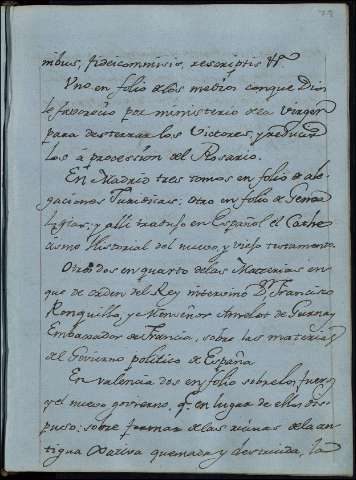 nibus, fideicommisis, rescriptis &ª.
Uno en folio de los medios con que Dios
le favoreció por ministerio de la Virgen
para desterrar los Victores, y reducir
los á procession del Rosario.
En Madrid tres tomos en folio de ale
gaciones Juridicas: otro en folio de Genea
logias: y alli tradujo en Español el Cathe
cismo Historial del nuevo, y viejo testamento.
Otros dos en quarto de las Materias en
que de orden del Rey intervino Dn. Francisco
Ronquillo, y Monseñor Amelot de Gurnay
Embaxador de Francia, sobre las materias
del Govierno politico de España
En Valencia dos en folio sobre los fueros
y el nuevo govierno, qe. en lugar de ellos dis
puso: sobre formar de las ruinas de la an
tigua Xativa quemada y destruida, la